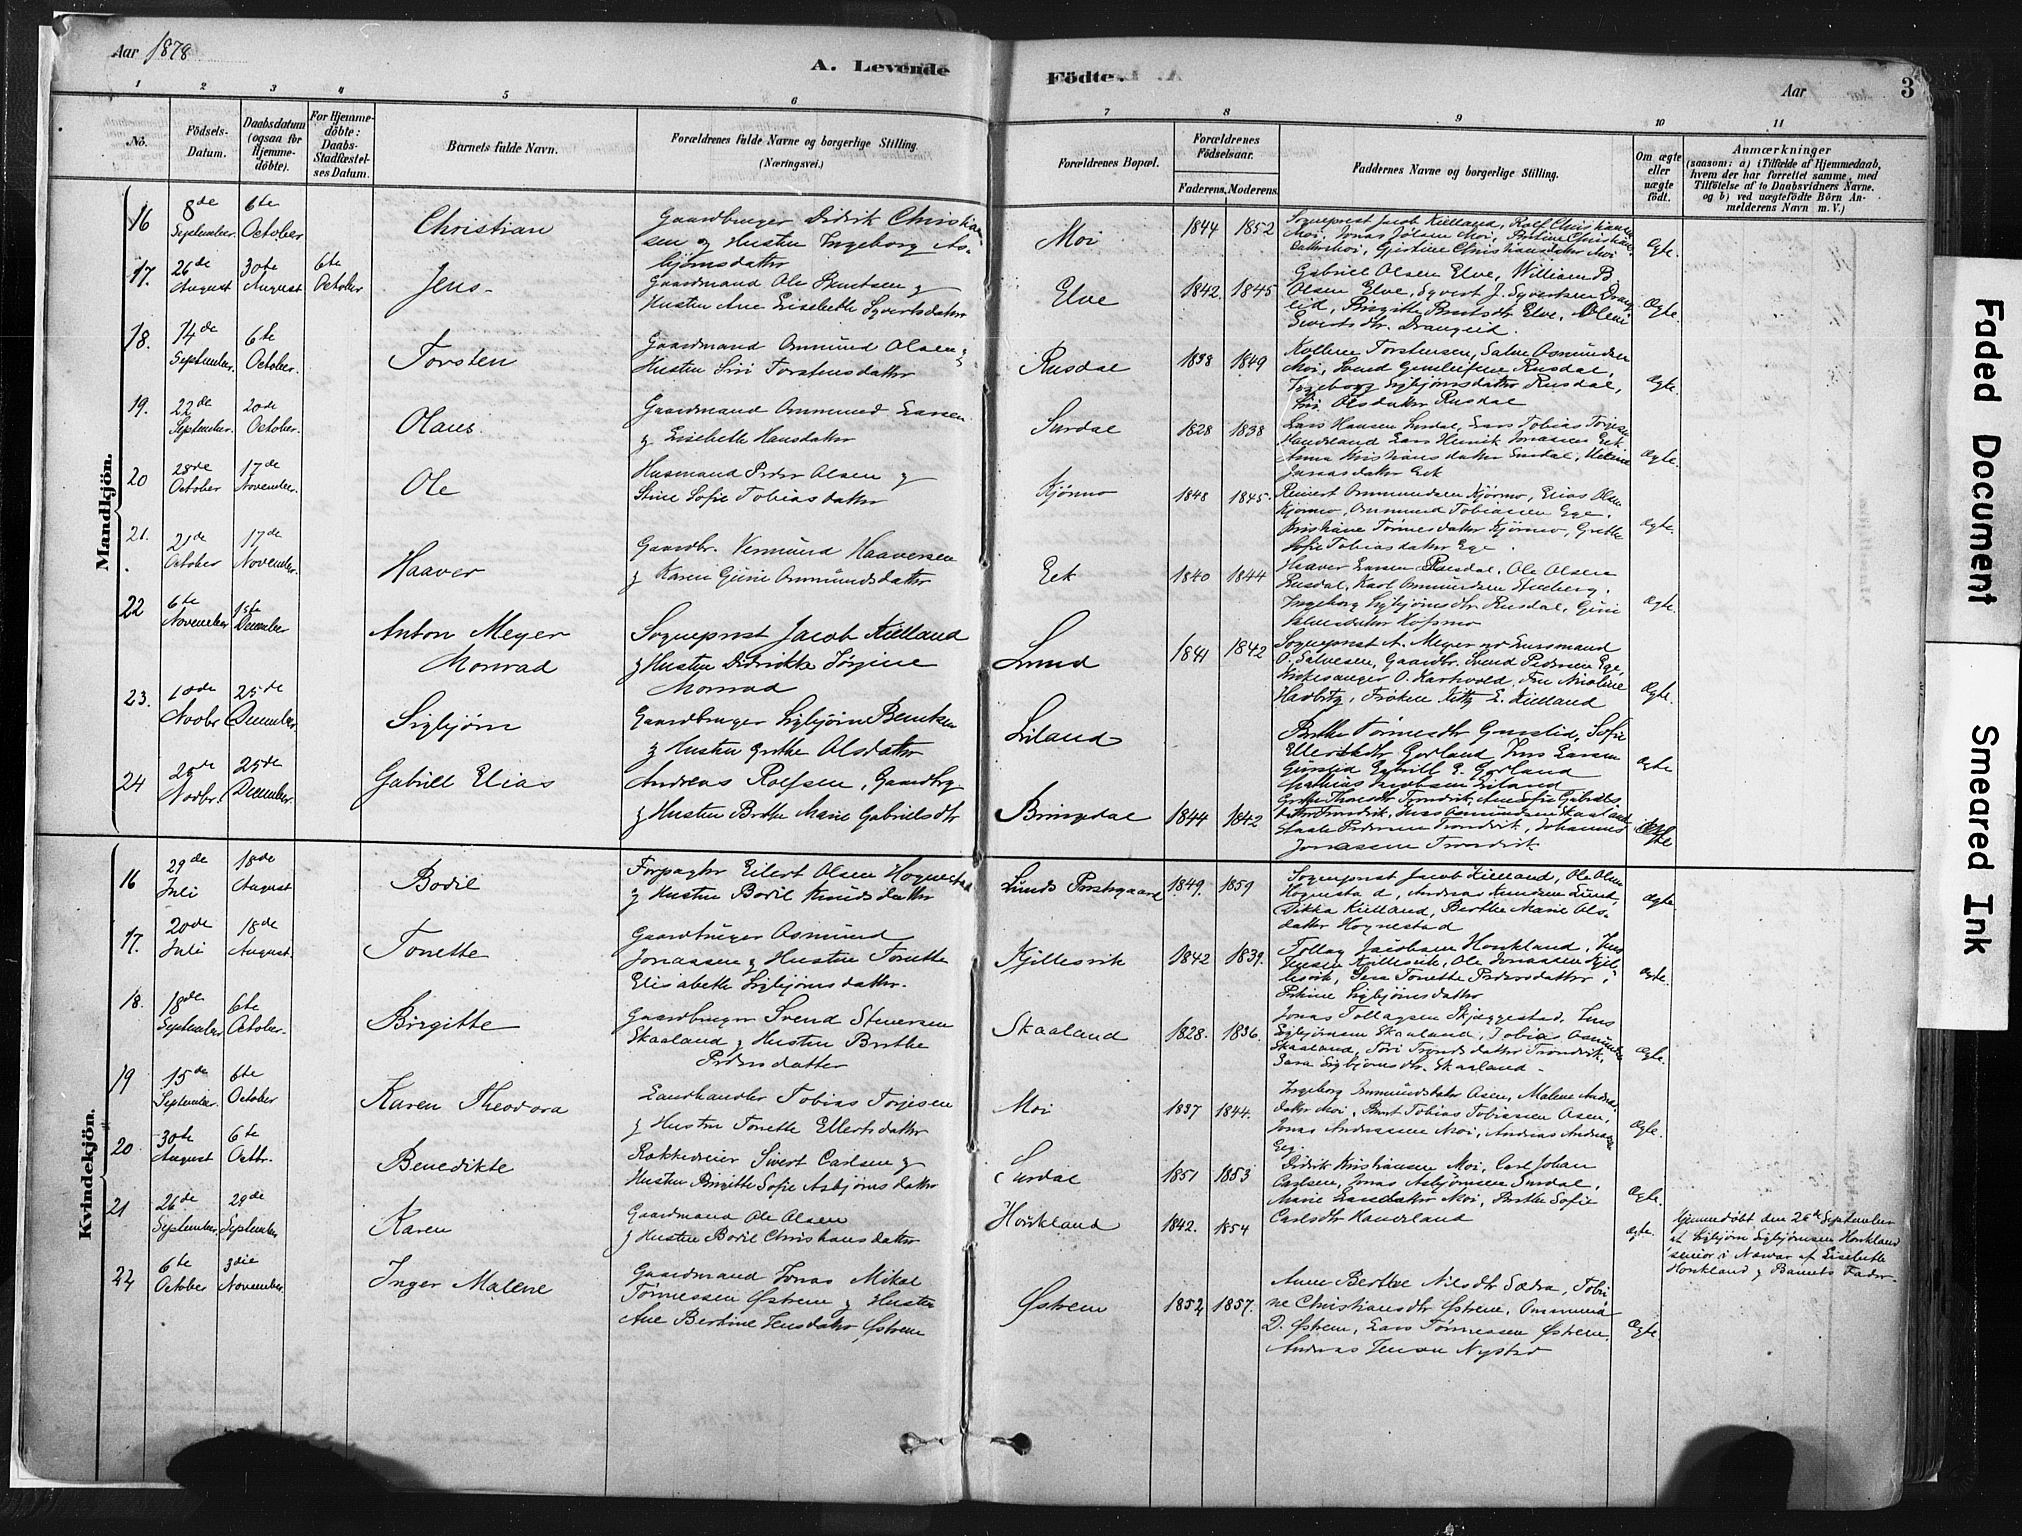 Aar 1878
A. Levende
Födte.
Aar
3
1 2 3 4 5 6 7 8 9 10 11
No.
Födsels-Datum.
Daabsdatum (ogsaa for Hjemme-döbte).
For Hjemme-döbte: Daabs-Stadfæstel-ses Datum.
Barnets fulde Navn.
Forældrenes fulde Navne og borgerlige Stilling.
(Næringsvei.)
Forældrenes Bopæl.
Forældrenes Födselsaar.
Faderens. Moderens.
Faddernes Navne og borgerlige Stilling.
Om ægte eller uægte födt.
Anmærkninger
(saasom: a) i Tilfælde af Hjemmedaab,
hvem der har forrettet samme, med
Tilföielse af to Daabsvidners Navne.
og b) ved uægtefödte Börn An-
melderens Navn m. V.)
Mandkjön.
16 8de September. 6te October Christian Gaardbruger Didrik Christian-
sen og Hustru Ingeborg As-
bjørnsdatter
Moi 1844 1852 Sogneprest Jacob Kielland, Rolf Christiansen
Moi, Jonas Jølsen Moi, Bertine Christians-
datter Moi, Gjertine Christiansdatter Moi
Ægte.
17. 26de August 30te August 6te October Jens. Gaardmand Ole Bentsen og
Hustru Ane Elisebeth Syvertsdatter
Elve 1842. 1845 Gabriel Olsen Elve, William B
Olsen Elve, Syvert J. Syvertsen Drang-
eid, Birgitte Bentsdtr Elve, Olene
Sivertsdtr. Drangeid.
Ægte.
18. 14de September. 6te October. Torsten Gaardmand Ommund Olsen og
Hustru Siri Torstensdatter
Rusdal 1838 1849 Torstensen, Salve Osmundsen
Moi, Svend Gunleifsen Rusdal,
Ingeborg Sigbjørnsdatter Rusdal,
Siri Olsdatter Rusdal
Ægte.
19. 22de September. 20de October. Olaus. Gaardmand Ommund Larsen
og Elisebeth Hansdatter
Surdal 1828 1838 Lars Hansen Surdal, Lars Tobias Torjesen
Haukland Lars Henrik Jonassen Eek
Anna Kristiansdatter Surdal,
Jonasdatter Eek
Ægte.
20 28de October 17de November. Ole Husmand Peder Olsen og
Stine Sofie Tobiasdatter
Kjørmo 1848 1845. Reinert Ommundsen Kjørmo, Elias Olsen
Kjørmo, Ommund Tobiassen Ege,
Kristiane Tønnesdatter Kjørmo, Grethe
Sofie Tobiasdatter Ege.
Ægte.
21. 21de October 17de November. Haaver Gaardbr. Vermund Haaversen
og Karen Gurine Ommundsdatter
Eek 1840 1844 Haaver Larsen Rusdal, Ole Olsen
Rusdal, Karl Ommundsen
Ingeborg Sigbjørnsdtr Rusdal, Guri
Salvesdatter
Ægte.
22 6te November 1ste December Anton Meyer
Monrad
Sogneprest Jacob Kielland
og Hustru Didrikke Jørgine
Monrad
Lund 1841 1842 Sogneprest A. Meyer og Lensmand
O. Salvesen, Gaardbr. Svend Pedersen Ege,
Kirkesanger O. Fru Nicoline
Frøken Kitty E. Kielland
Ægte.
23. 10de Novbr 25de December Sigbjørn Gaardbruger Sigbjørn Bentsen
og Hustru Grethe Olsdatter
Leiland Berthe Tønnesdtr Gursli, Sofie
Ellertsdtr Gjerland Jens Larsen
E. Gjerland
Mathias Jacobsen Eiland
Ægte
24 29de Novbr. 25de December. Gabriel Elias Andreas Rolfsen, Gaardbrg
og Hustru Berthe Marie Gabrielsdtr
Bringedal 1844 1842 Tronvik, Ane Sofie Gabriels-
datter Tronvik, Jens Osmundsen Skaaland
Staale Pedersen Tronvik, Johannes
Jonassen Tronvik
Ægte
Kvindekjön.
16 29de Juli 18de August Bodil Forpagter Eilert Olsen Hognestad
og Hustru Bodil Knudsdatter
Lunds Prestegaard 1849. 1859 Sogneprest Jacob Kielland, Ole Olsen
Hognestad, Andreas Knudsen Lund,
Dikka Kielland, Berthe Marie Ols-
datter Hognestad
Ægte.
17. 20de Juli 18de August. Tonette Gaardbruger Osmund
Jonassen og Hustru Tonette
Elisabeth Sigbjørnsdatter.
Kjellesvik 1842 1839. Tollag Jacobsen Houkland, Jens
Jensen Kjellesvik, Ole Jonassen Kjel-
lesvik, Sara Tonette Pedersdatter,
Petrine Sigbjørnsdatter
Ægte.
18. 18de September. 6te October. Birgitte Gaardbruger Svend Stenersen
Skaaland og Hustru Berthe
Pedersdatter
Skaaland 1828. 1836. Jonas Tollagsen Skjeggestad, Jens
Sigbjørnsen Skaaland, Tobias Osmundsen
Skaaland, Tori Trondsdatter Tronvik,
Sara Sigbjørnsdtr. Skaaland.
Ægte.
19 15de September. 6te October Karen Theodora Landhandler Tobias Torjesen
og Hustru Tonette Ellertsdatter
Moi 1837 1844. Ingeborg Ommundsdatter Osen, Malene Andreas-
datter Moi, Bent Tobias Tobiassen Osen,
Jonas Andreassen Moi, Andreas Andreassen
Eeg
Ægte.
20 30te August 6te Octbr. Benedikte Rakkereier Sivert Carlsen og
Hustru Birgitte Sofie Asbjørnsdatter
Surdal 1851 1853 Didrik Kristiansen Moi, Carl Johan
Carlsen, Jonas Asbjørnsen Surdal,
Marie Larsdatter Moi, Berthe Sofie
Carlsdtr Haukland
Ægte.
21 26de September. 29de September Karen Gaardmand Ole Olsen
og Hustru Bodil Christiansdatter
Houkland 1842. 1854
Ægte.
Hjemmedøbt den 26de September
af Sigbjørn Sigbjørnsen Houkland
senior i Nærvær af Elisebeth
Houkland og Barnets Fader.
22 6te October 3die November. Inger Malene Gaardmand Jonas Mikal
Tønnessen Østrem og Hustru
Ane Bertine Jensdatter Østrem
Østrem 1852 1857. Anne Berthe Nilsdtr Sædra, Tobi-
ne Christiansdtr Østrem, Ommund
D. Østrem, Lars Tønnessen Østrem.
Andreas Jensen Nystad
Ægte.
Faded Document
Smeared Ink